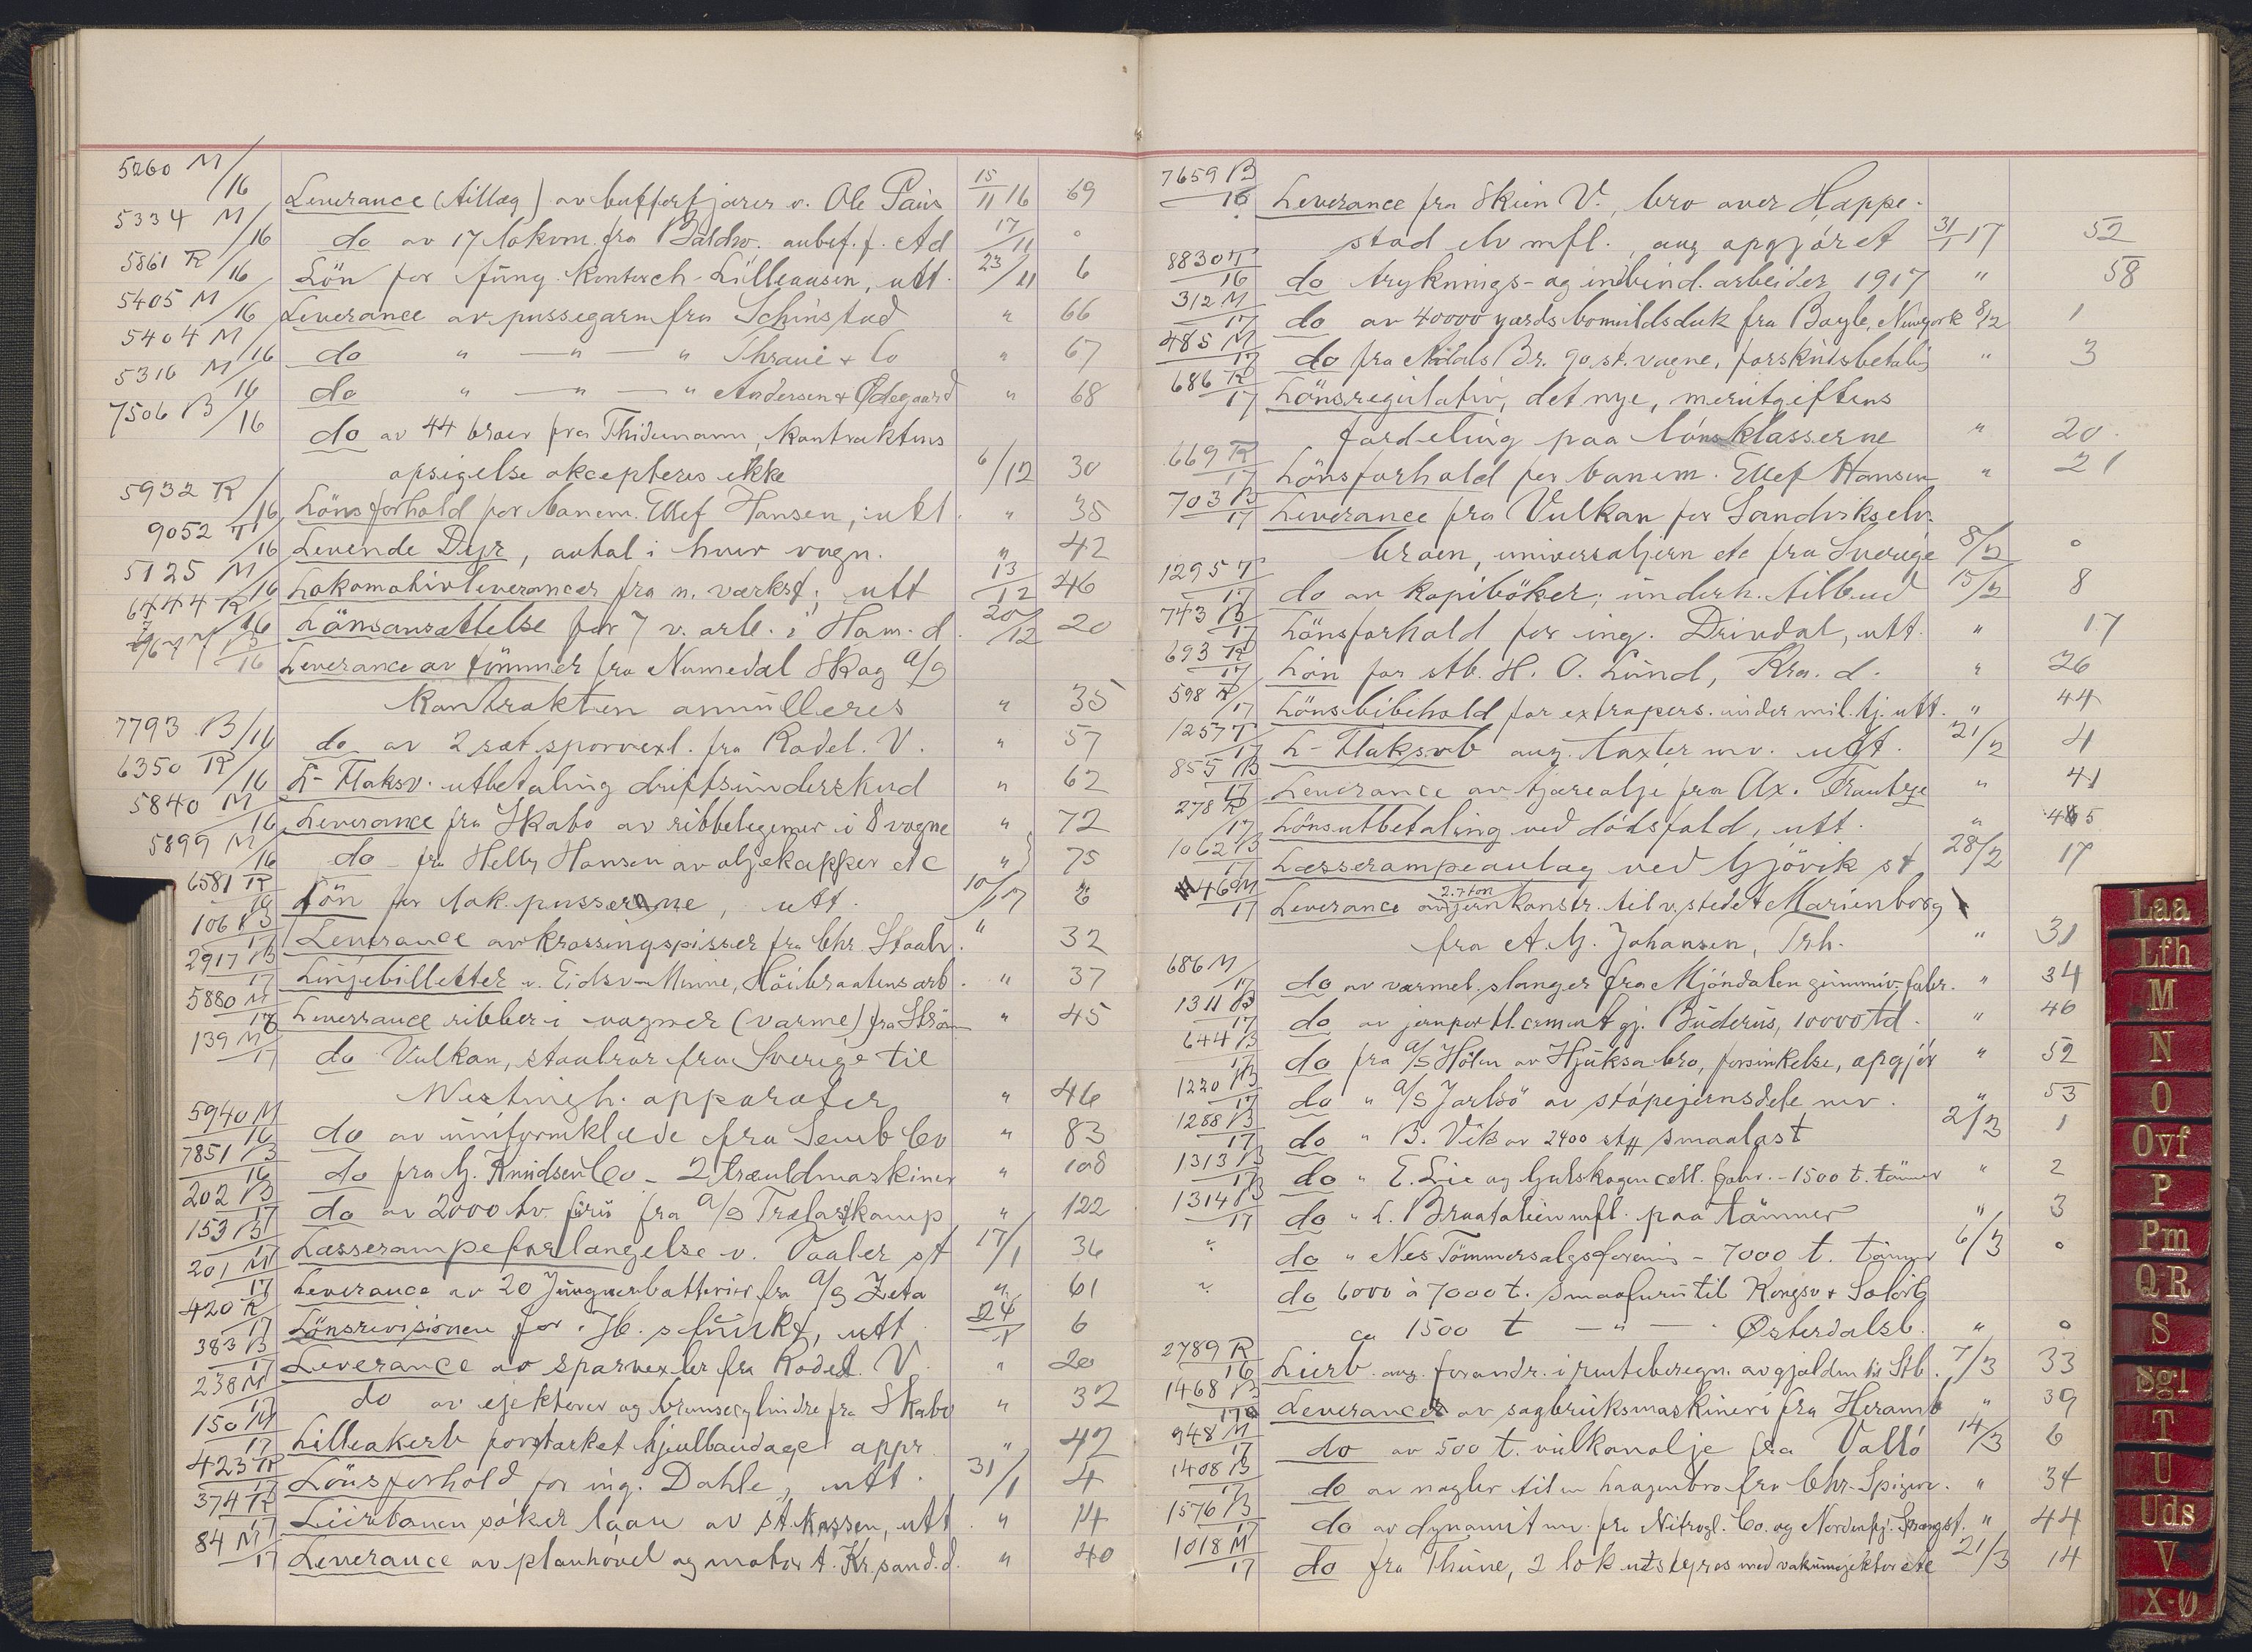 5260 M/16 Leverance (tillæg) av bufferfjærer v. Ole Paus 15/11 16 69
5334 M/16 do av 17 lokom. fra Baldw. anbef. f. Ad 17/11 0
5861 R/16 Lön for fung. kontorch. Lilleaasen, utt. 23/11 6
5405 M/16 Leverance av pussegarn fra Schinstad " 66
5404 M/16 do " — " — " Thraue & Co " 67
5316 M/16 do " — " — " Andersen & Ødegaard " 68
7506 B/16 do av 44 broer fra Thidemann, kontraktens
opsigelse akcepteres ikke 6/12 30
5932 R/16 Lönsforhold for banem. Ellef Hansen, utt. " 35
9052 T/16 Levende Dyr, antal i hver vogn. " 42
5125 M/16 Lokomotivleverancer fra n. værkst; utt 13/12 46
6444 R/16 Lönsansættelse for 7 v. arb. i Ham. d. 20/12 20
B/16 Leverance av tömmer fra Numedal Skog a/s
Kontrakten annulleres " 35
7793 B/16 do av 2 sæt sporvexl. fra Rodel. V. " 57
6350 R/16 L-Flaksv. utbetaling driftsunderskud " 62
5840 M/16 Leverance fra Skabo av ribbelegemer i 8 vogne " 72
5899 M/16 do fra Helly Hansen av oljekapper etc " 75
6581 R/16 Lön for lok. pusserne, utt. 10/1 17 6
106 B/17 Leverance av krossingspisser fra Chr. Staalv. " 32
2917 B/17 Linjebilletter v. Eidsv-Minne, Höibraatens arb. " 37
5880 M/16 Leverance ribber i vogner (varme) fra Ström " 45
139 M/17 do Vulkan, staalrör fra Sverige til
Westingh. apparater " 46
5940 M/16 do av uniformklæde fra Semb Co " 83
7851 B/16 do fra G. Knudsen Co - 2 træuldmaskiner " 108
202 B/17 do av 2000 tv. furu fra a/s Trælastkomp " 122
153 B/17 Læsserampeforlængelse v. Vaaler st 17/1 36
201 M/17 Leverance av 20 Jungnerbatterier fra a/s Zeta " 61
420 R/17 Lönsrevisionen for Jb. s funkt, utt 24/1 6
383 B/17 Leverance av sporvexler fra Rodel. V. " 20
238 M/17 do av ejektorer og bremsecylindre fra Skabo " 32
150 M/17 Lilleakerb forstærket hjulbandage appr " 42
423 R/17 Lönsforhold for ing. Dahle, utt. 31/1 4
374 R/17 Lierbanen söker laan av st.kassen, utt " 14
84 M/17 Leverance av planhövel og motor t. Kr.sand.d. " 40
7659 B/16 Leverance fra Skien V., bro over Happe-
stad elv mfl., ang opgjöret 31/1 17 52
8830 T/16 do tryknings- og indbind. arbeider 1917 " 58
312 M/17 do av 40000 yards bomuldsduk fra Bayle, Newyork 8/2 1
485 M/17 do fra Br. 90 st. vogne, forskudsbetaling " 3
686 R/17 Lönsregulativ, det nye, merutgiftens
fordeling paa lönsklasserne " 20
669 R/17 Lönsforhold for banem. Ellef Hansen " 21
703 B/17 Leverance fra Vulkan for Sandvikselv-
broen, universaljern etc fra Sverige 8/2 0
1295 T/17 do av kopiböker; underh. tilbud 15/2 8
743 B/17 Lönsforhold for ing. Drivdal, utt. " 17
693 R/17 Lön for stb. H. O. Lund, Kra. d. " 26
598 R/17 Lönsbibehold for extrapers. under mil. tj. utt. " 44
1257 T/17 L-Flaksvb ang. taxter mv. utt. 21/2 4
855 B/17 Leverance av tjæreolje fra Ax. " 41
278 R/17 Lönsutbetaling ved dödsfald, utt. " 45
1062 B/17 Læsserampeanlag ved Gjövik st 28/2 17
469 M/17 Leverance av 2.7 ton jernkonstr. til v.stedet Marienborg
fra A. G. Johansen, Trh. " 31
686 M/17 do av varmel. slanger fra Mjöndalen gummiv. fabr. " 34
1311 B/17 do av jernportl. cement gj. Buderus, 10000 td. " 46
644 B/17 do fra a/s Holm av Hjuksa bro, forsinkelse, opgjör " 52
1220 B/17 do " a/s Jarlsö av stöpejernsdele mv. " 53
1288 B/17 do " B. Vik av 2400 stk smaalast 2/3 1
1313 B/17 do " E. Lie og Gulskogen cell. fabr. - 1500 t. tömmer " 2
1314 B/17 do " L. Braatalien mfl. paa tömmer " 3
" do " Nes Tömmersalgsforenin - 7000 t. tömmer 6/3 0
" do 6000 à 7000 t. smaafuru til Kongsv & Solörb
ca 1500 t — " — Østerdalsb. " 0
2789 R/16 Lierb. ang. forandr. i ruteberegn. av gjælden til Stb. 7/3 33
1468 B/17 Leverance av sagbruksmaskineri fra Heramb " 39
948 M/17 do av 500 t. vulkanolje fra Vallö 14/3 6
1408 B/17 do av nagler til en haagenbro fra Chr. Spigerv. " 34
1576 B/17 do av dynamit mv. fra Nitrogl. Co. og Nordenfj. Sprængst. " 44
1018 M/17 do fra Thune, 2 lok utstyres med vakumejektor etc 21/3 14
Laa
Lfh
M
N
O
Ovf
P
Pm
Q-R
S
Sgl
T
U
Uds
V
X-Ø